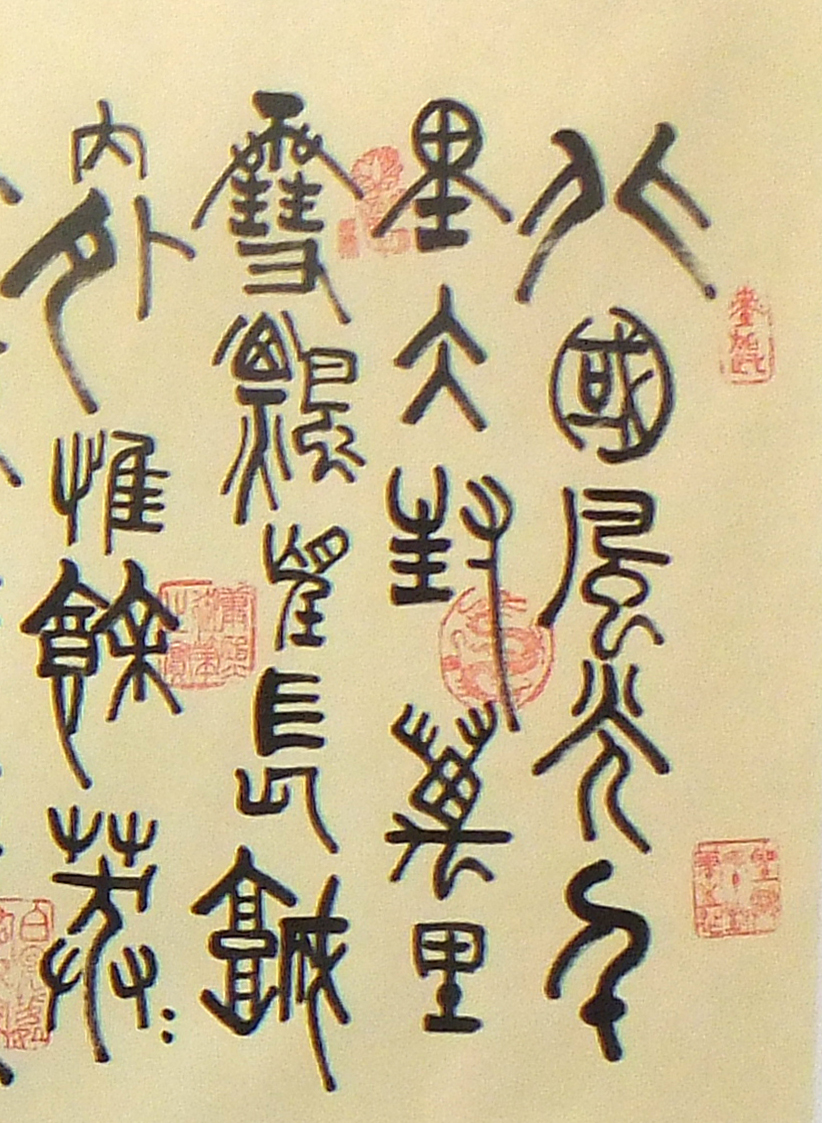 北國風光千
里冰封萬里
雪飄望長城
內外惟餘莽々